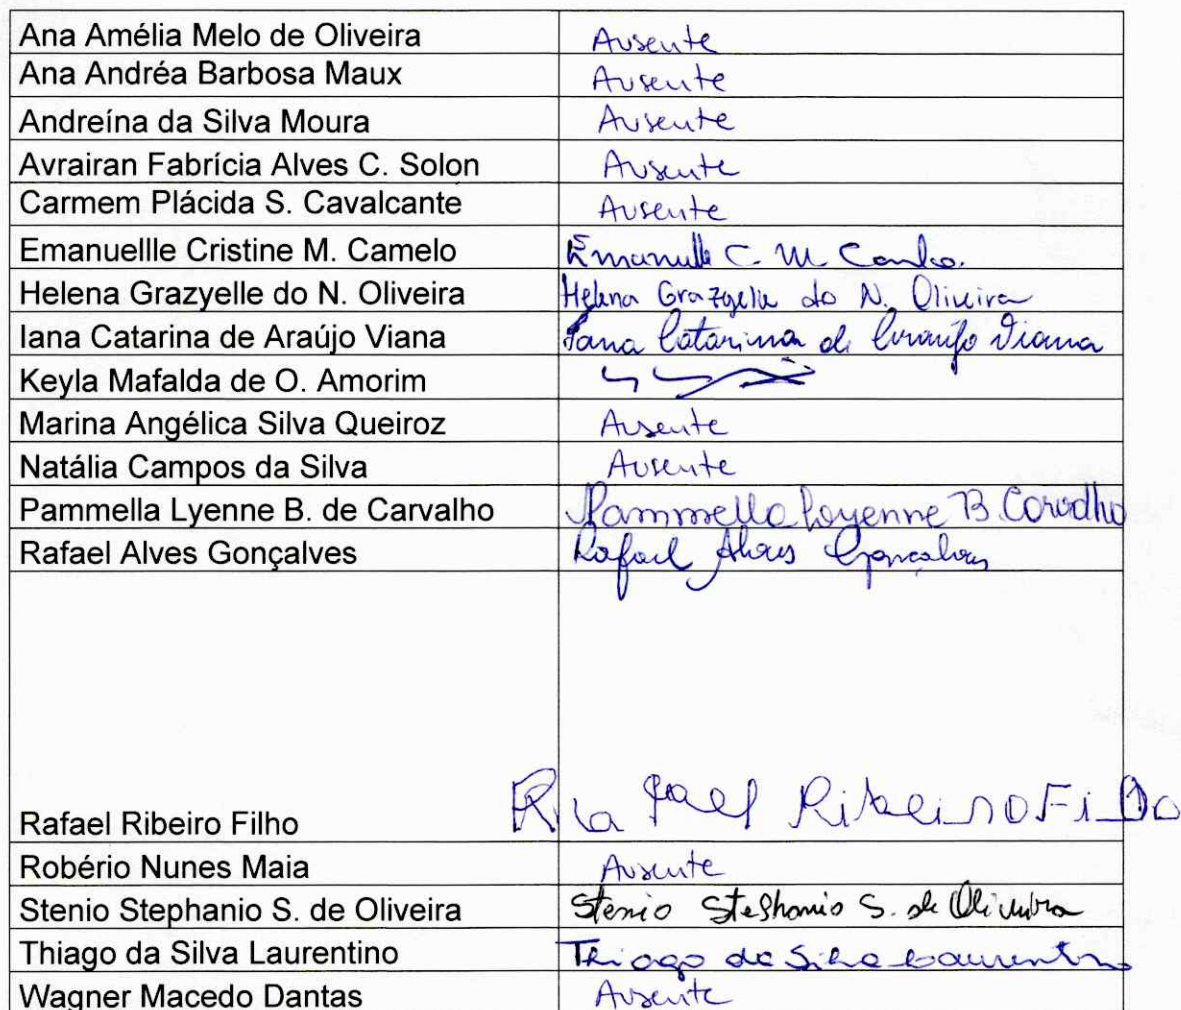 Ana Amélia Melo de Oliveira Ausente
Ana Andréa Barbosa Maux Ausente
Andreína da Silva Moura Ausente
Avrairan Fabrícia Alves C. Solon Ausente
Carmem Plácida S. Cavalcante Ausente
Emanuellle Cristine M. Camelo Emanuelle C. M. Camelo.
Helena Grazyelle do N. Oliveira Helena Grazyelle do N. Oliveira
Iana Catarina de Araújo Viana Iana Catarina de Araújo Viana
Keyla Mafalda de O. Amorim
Marina Angélica Silva Queiroz Ausente
Natália Campos da Silva Ausente
Pammella Lyenne B. de Carvalho Pammella Lyenne B. Carvalho
Rafael Alves Gonçalves Rafael Alves Gonçalves
Rafael Ribeiro Filho Rafael Ribeiro Filho
Robério Nunes Maia Ausente
Stenio Stephanio S. de Oliveira Stenio Stephanio S. de Oliveira
Thiago da Silva Laurentino Thiago da Silva Laurentino
Wagner Macedo Dantas Ausente